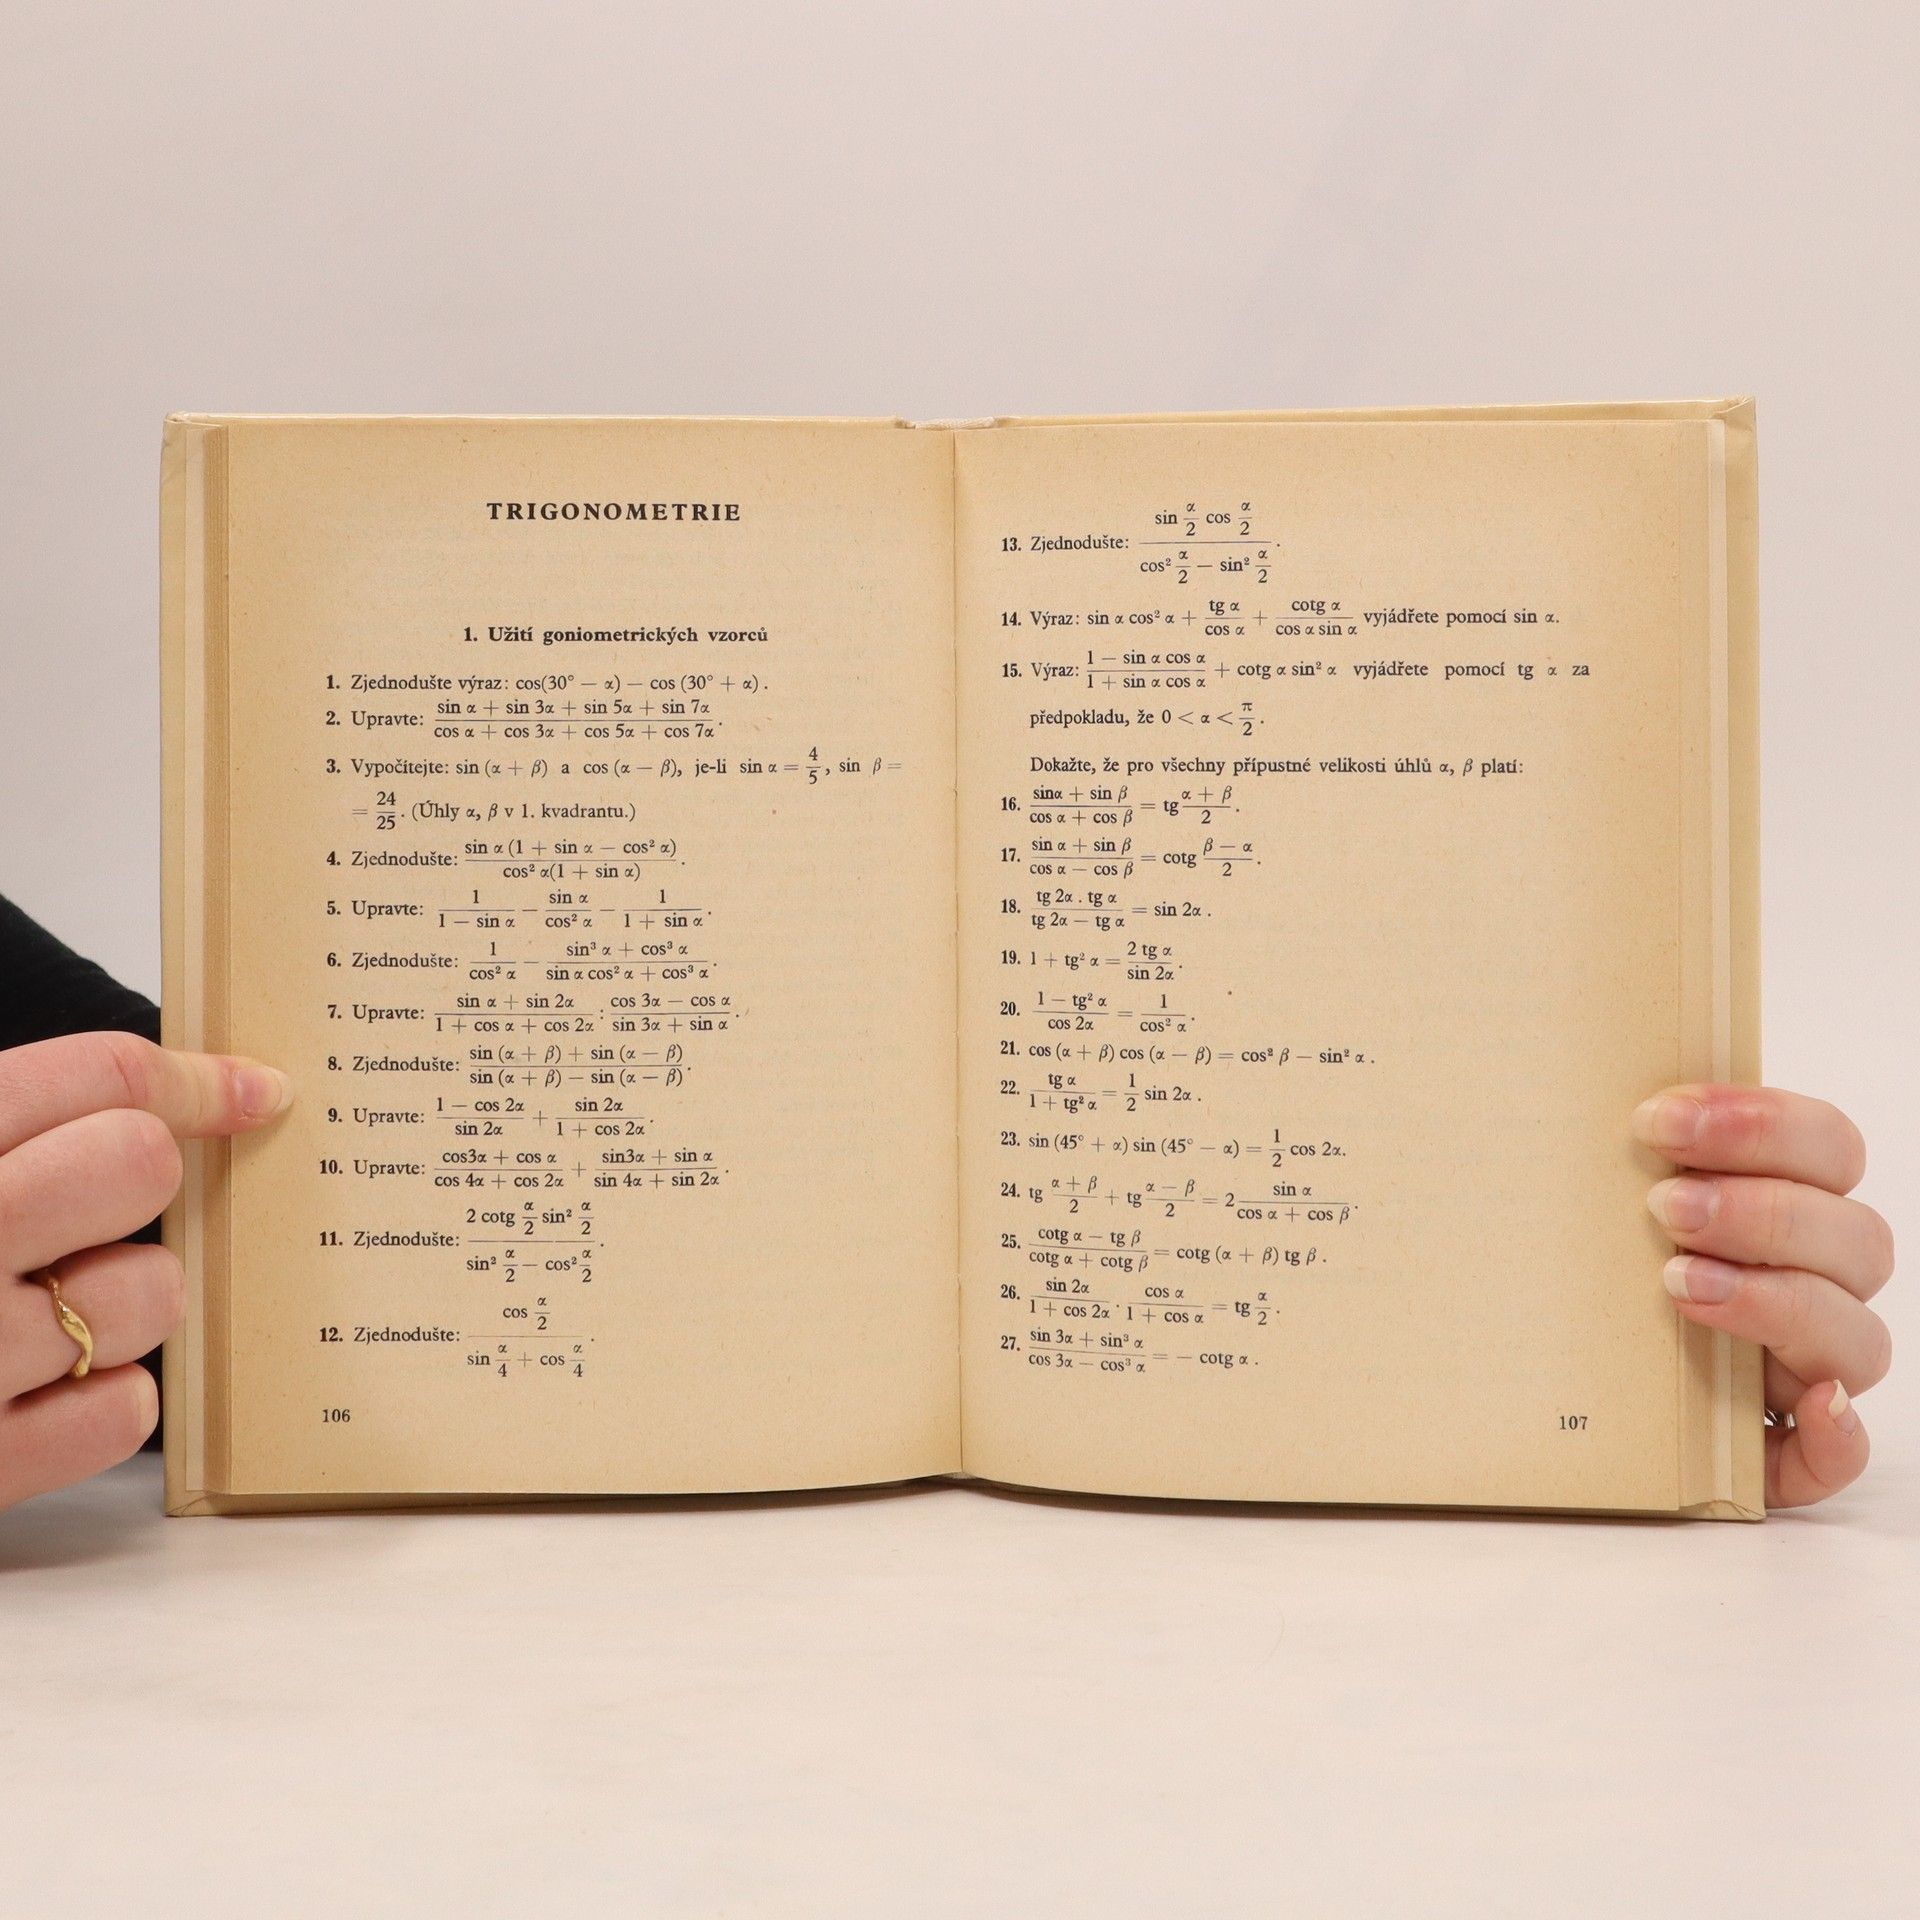 TRIGONOMETRIE
1. Užití goniometrických vzorců
1. Zjednodušte výraz: cos(30° − α) − cos (30° + α) .
2. Upravte: (sin α + sin 3α + sin 5α + sin 7α)/(cos α + cos 3α + cos 5α + cos 7α) .
3. Vypočítejte: sin (α + β) a cos (α − β), je-li sin α = 4/5, sin β =
= 24/25. (Úhly α, β v 1. kvadrantu.)
4. Zjednodušte: (sin α (1 + sin α − cos² α))/(cos² α(1 + sin α)) .
5. Upravte: 1/(1 − sin α) − sin α/cos² α − 1/(1 + sin α) .
6. Zjednodušte: 1/cos² α − (sin³ α + cos³ α)/(sin α cos² α + cos³ α) .
7. Upravte: (sin α + sin 2α)/(1 + cos α + cos 2α) : (cos 3α − cos α)/(sin 3α + sin α) .
8. Zjednodušte: (sin (α + β) + sin (α − β))/(sin (α + β) − sin (α − β)) .
9. Upravte: (1 − cos 2α)/(sin 2α) + (sin 2α)/(1 + cos 2α) .
10. Upravte: (cos3α + cos α)/(cos 4α + cos 2α) + (sin3α + sin α)/(sin 4α + sin 2α) .
11. Zjednodušte: (2 cotg α/2 sin² α/2)/(sin² α/2 − cos² α/2) .
12. Zjednodušte: (cos α/2)/(sin α/4 + cos α/4) .
106
13. Zjednodušte: (sin α/2 cos α/2)/(cos² α/2 − sin² α/2) .
14. Výraz: sin α cos² α + tg α/cos α + cotg α/(cos α sin α) vyjádřete pomocí sin α.
15. Výraz: (1 − sin α cos α)/(1 + sin α cos α) + cotg α sin² α vyjádřete pomocí tg α za
předpokladu, že 0 < α < π/2 .
Dokažte, že pro všechny přípustné velikosti úhlů α, β platí:
16. (sinα + sin β)/(cos α + cos β) = tg (α + β)/2 .
17. (sin α + sin β)/(cos α − cos β) = cotg (β − α)/2 .
18. (tg 2α . tg α)/(tg 2α − tg α) = sin 2α .
19. 1 + tg² α = (2 tg α)/(sin 2α) .
20. (1 − tg² α)/(cos 2α) = 1/(cos² α) .
21. cos (α + β) cos (α − β) = cos² β − sin² α .
22. (tg α)/(1 + tg² α) = 1/2 sin 2α .
23. sin (45° + α) sin (45° − α) = 1/2 cos 2α.
24. tg (α + β)/2 + tg (α − β)/2 = 2 (sin α)/(cos α + cos β) .
25. (cotg α − tg β)/(cotg α + cotg β) = cotg (α + β) tg β .
26. (sin 2α)/(1 + cos 2α) . (cos α)/(1 + cos α) = tg α/2 .
27. (sin 3α + sin³ α)/(cos 3α − cos³ α) = − cotg α .
107